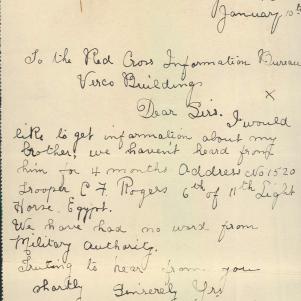 January 10th
To the Red Cross Information Bureau
Verco Buildings
X
Dear Sirs.
I would
like to get information about my
brother, we haven't heard from
him for 4 months Address No 1520
Trooper C F Rogers 6th of 11th Light
Horse. Egypt.
We have had no word from
Military Authority.
Trusting to hear from you
shortly Sincerely Yrs